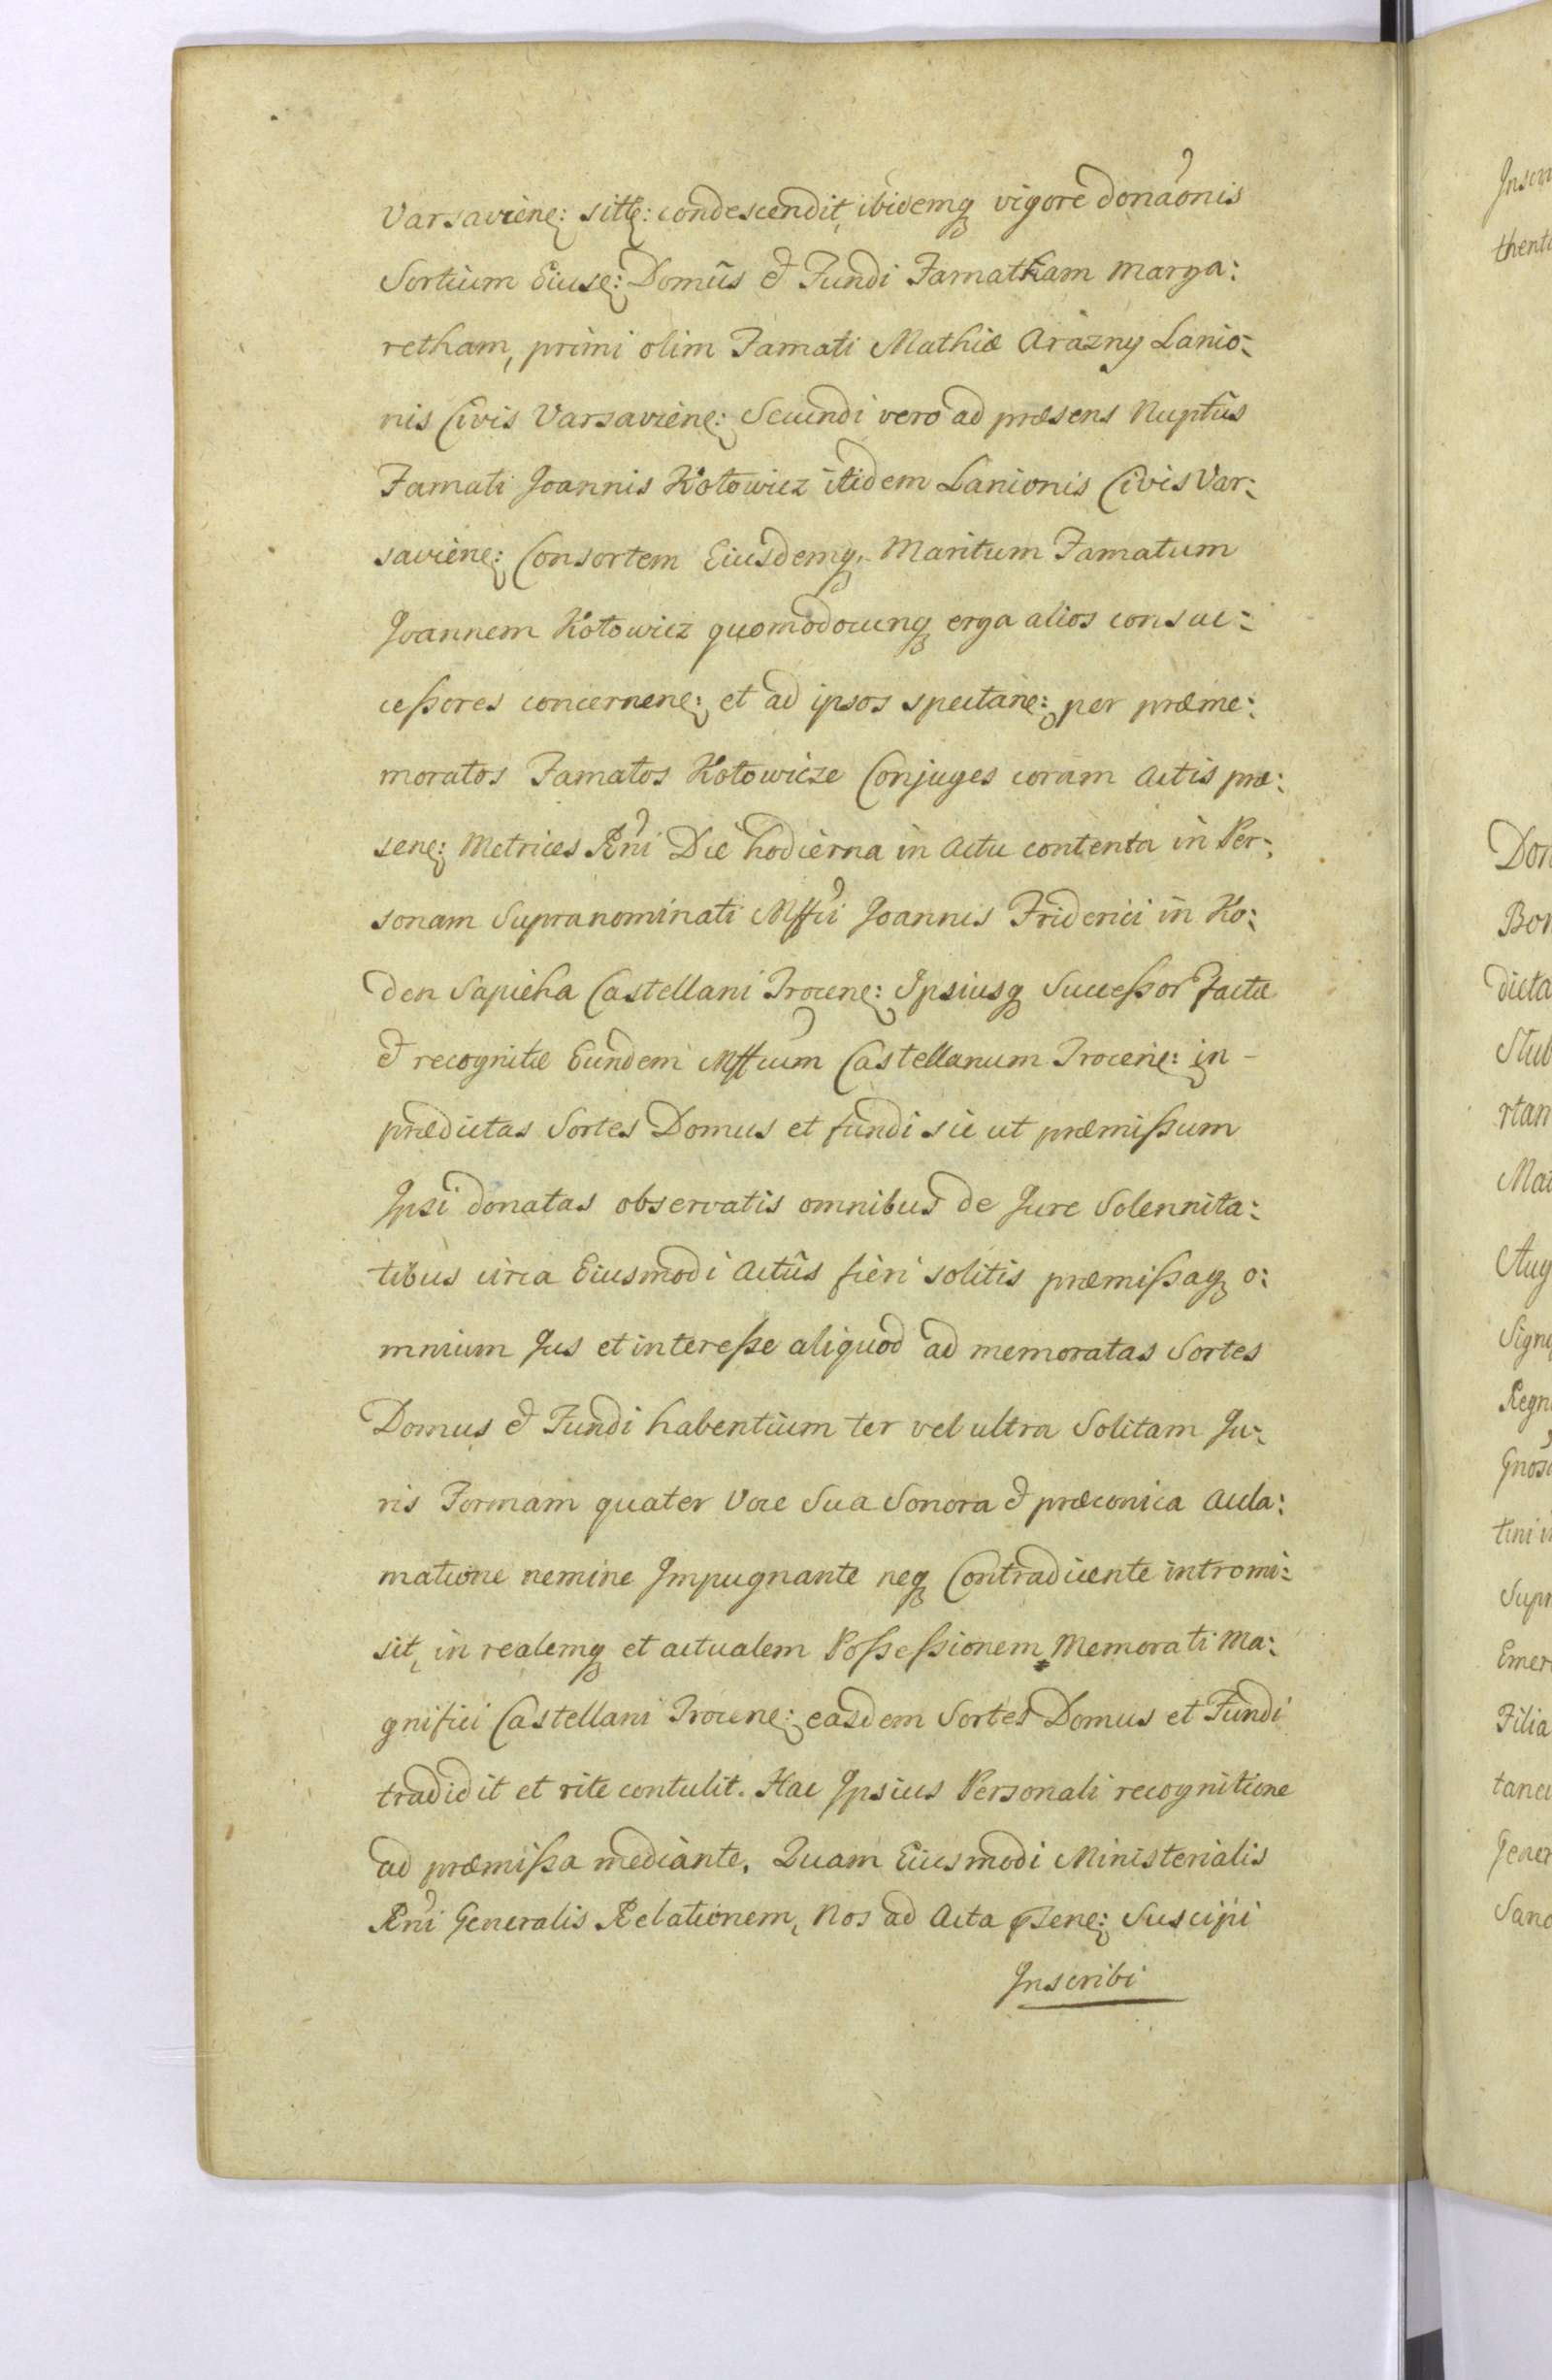 Varsavien: sitt: condescendit, ibidemq vigore donaonis
Sortium Eiusd: Domûs & Fundi Famatham Marga:
retham, primi olim Famati Mathiæ Arazny Lanio:
nis Civis Varsavien: Secundi vero ad præsens Nuptûs
Famati Joannis Kotowicz itidem Lanionis Civis Var:
savien: Consortem Eiusdemq, Maritum Famatum
Joannem Kotowicz quomodocunq erga alios consuc:
ceßores concernen: et ad ipsos spectan: per præme:
moratos Famatos Kotowicze Conjuges coram Actis præ:
sen: Metrices Rni Die hodierna in Actu contenta in Per:
sonam Supranominati Mffci Joannis Friderici in Ko:
den Sapieha Castellani Trocen: Ipsiusq Succeßor factæ
& recognitæ Eundem Mffcum Castellanum Trocen: in -
prædictas Sortes Domus et fundi sic ut præmißum
Ipsi donatas observatis omnibus de Jure Solennita:
tibus circa Eiusmodi Actûs fieri solitis præmißaq o:
mnium Jus et intereße aliquod ad memoratas Sortes
Domus & Fundi habentium ter vel ultra Solitam Ju:
ris Formam quater Voce Sua Sonora & præconica Accla:
matione nemine Impugnante neq Contradicente intromi:
sit, in realemq et actualem Poßeßionem Memorati Ma:
gnifici Castellani Trocen: easdem Sortes Domus et Fundi
tradidit et rite contulit. Hac Ipsius Personali recognitione
ad præmißa mediante. Quam Eiusmodi Ministerialis
Rni Generalis Relationem, Nos ad Acta psen: Suscipi
Inscribi